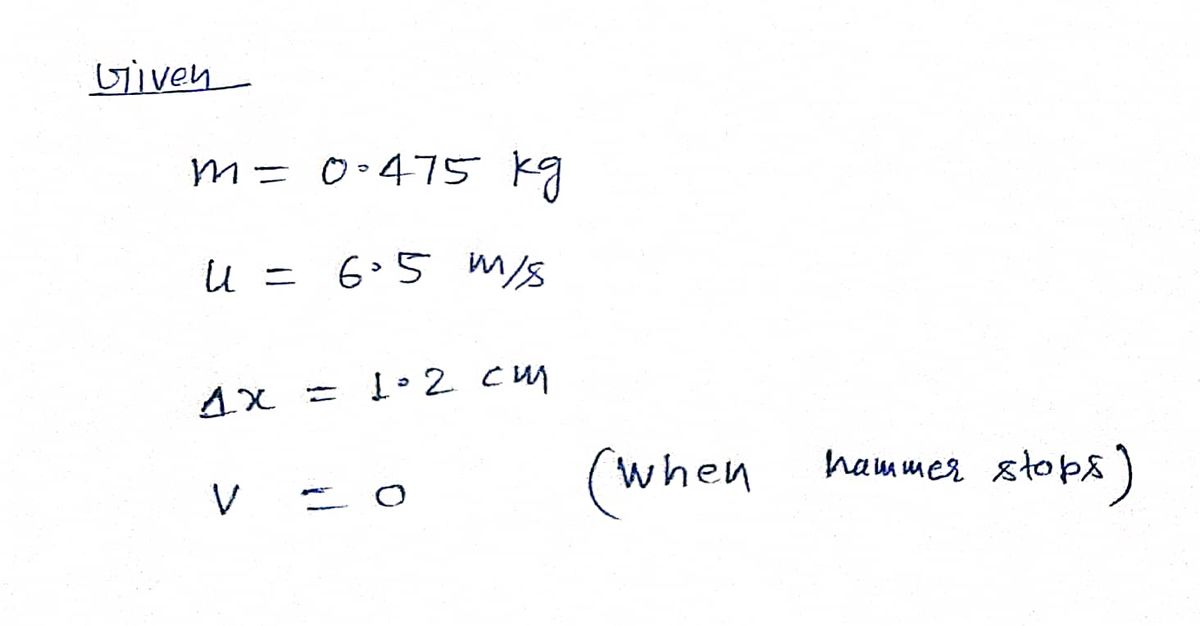 Given
m = 0.475 kg
u = 6.5 m/s
Δx = 1.2 cm
v = 0 (when hammer stops)